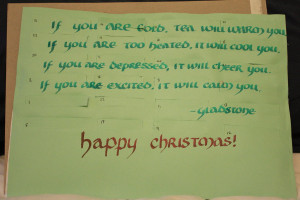 If you are cold, tea will warm you.
If you are too heated, it will cool you.
If you are depressed, it will cheer you.
If you are excited, it will calm you.
-Gladstone
happy christmas!